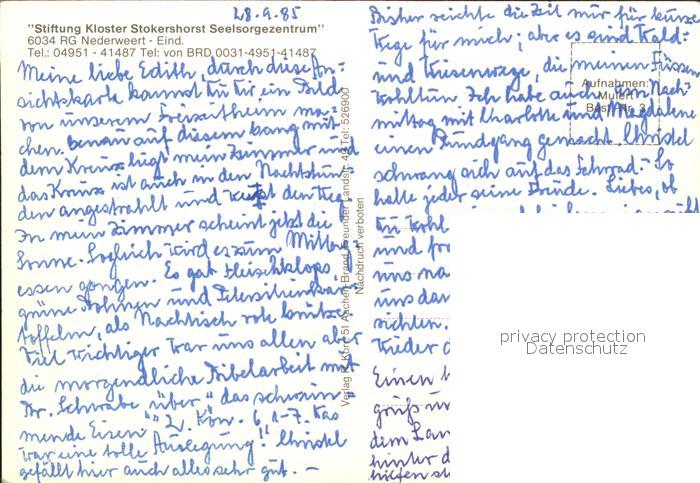 28.9.85
"Stiftung Kloster Stokershorst Seelsorgezentrum"
6034 RG Nederweert - Eind.
Tel.: 04951 - 41487 Tel: von BRD 0031-4951-41487
Meine liebe Edith, durch diese An-
sichtskarte kannst Du Dir ein Bild
von unserem Freizeitheim ma-
chen. Genau auf diesem Gang mit
dem Kreuz liegt mein Zimmer und
das Kreuz ist auch in den Nachtstun-
den angestrahlt und weist den Weg.
In mein Zimmer scheint jetzt die
Sonne. Sogleich wird es zum Mittag-
essen gongen. Es gab Fleischklops,
grüne Bohnen und Petersilienkar-
toffeln, als Nachtisch rote Grütze.
Viel wichtiger war uns allen aber
die morgendliche Bibelarbeit mit
Br. Schwabe über "das schwim-
mende Eisen" 2. Kön. 6, 1-7. Das
war eine tolle Auslegung! Christel
gefällt hier auch alles sehr gut. -
Verlag R. Korr, 51 Aachen-Brand, Freunder Landstr. 49 Tel: 526900
Nachdruck verboten
Bisher reichte die Zeit nur für kurze
Wege für mich; aber es sind Wald-
und Wiesenwege, die meinen Füssen
wohltun. Ich habe auch am Nach-
mittag mit Charlotte und Magdalene
einen Rundgang gemacht. Christel
schwang sich auf das Fahrrad. So
hatte jeder seine Freude. Liebes, ob
Aufnahmen:
Mulert
Best. Nr. 3
Du wohl
und
uns
uns
sichten.
wieder
Einen
gruß
dem
hinter
privacy protection
Datenschutz